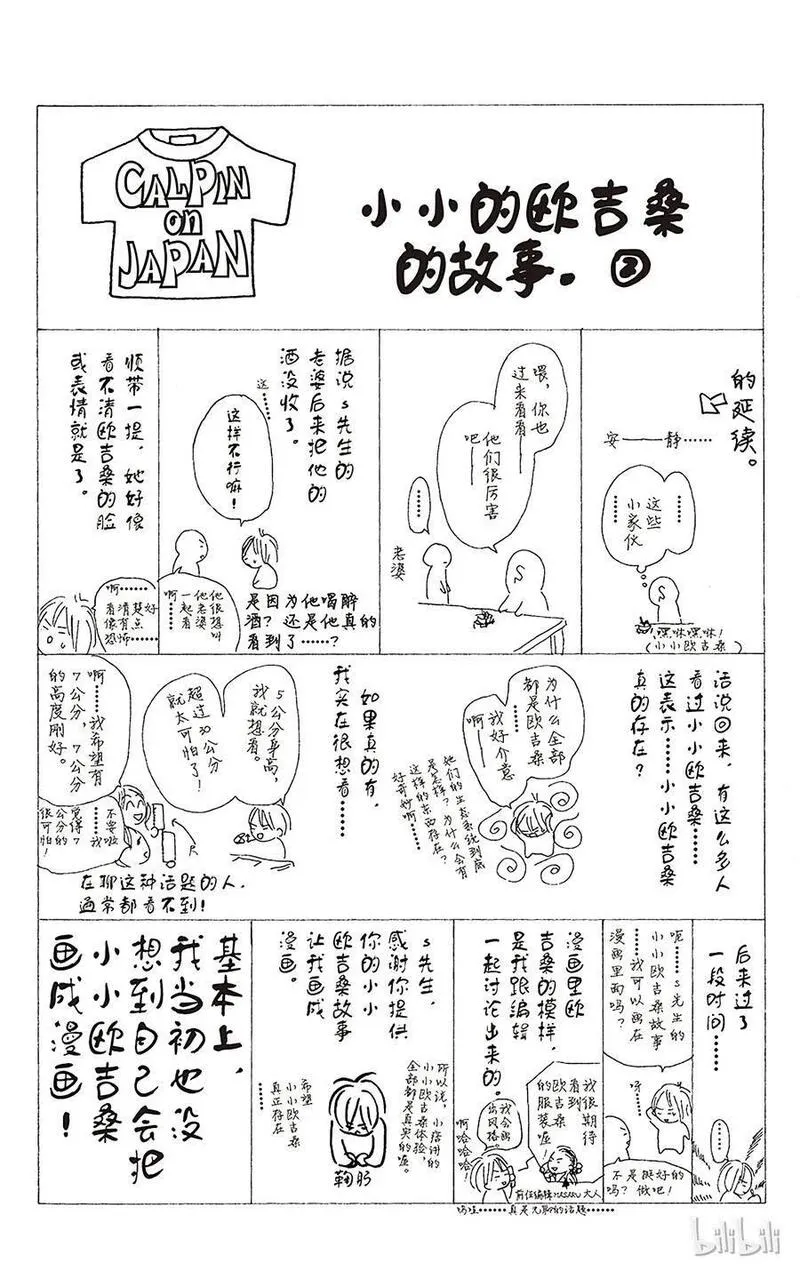 CALPIN
on
JAPAN
小小的欧吉桑
的故事。②
的延续。
安——静……
这些
小家伙
……
嘿咻嘿咻!
(小小欧吉桑)
喂,你也
过来看看
他们很厉害
吧——
……
老婆
S
据说S先生的
老婆后来把他的
酒没收了。
这……
这样不行嘛!
他很想叫
他老婆
一起看
是因为他喝醉
酒?还是他真的
看到了……?
顺带一提,她好像
看不清欧吉桑的脸
或表情就是了。
啊……
看清楚好
像有点
恐怖……
话说回来,有这么多人
看过小小欧吉桑……
这表示……小小欧吉桑
真的存在?
为什么全部
都是欧吉桑
我好介意
啊——
他们的生态系统到底
是怎样?为什么会有
这样的东西存在?
好奇妙啊……
如果真的有,
我实在很想看……
5公分身高,
我就想看。
超过30公分
就太可怕了!
啊……我希望有
7公分,7公分
的高度刚好。
不要啦
我觉得7
公分的
很可怕!
尺
在聊这种话题的人,
通常都看不到!
后来过了
一段时间……
……
呃……S先生的
小小欧吉桑故事
……我可以画在
漫画里面吗?
呀
不是挺好的
吗?做吧!
漫画里欧
吉桑的模样,
是我跟编辑
一起讨论出来的。
我很期待
看到
欧吉桑
的服装喔!
我会画
啊哈哈哈!
前任编辑 大人
S先生,
感谢你提供
你的小小
欧吉桑故事
让我画成
漫画。
所以说,小唐讲的
小小欧吉桑体验,
全部都是真实的喔。
希望
小小欧吉桑
真正存在
鞠躬
基本上,
我当初也没
想到自己会把
小小欧吉桑
画成漫画!
bilibili